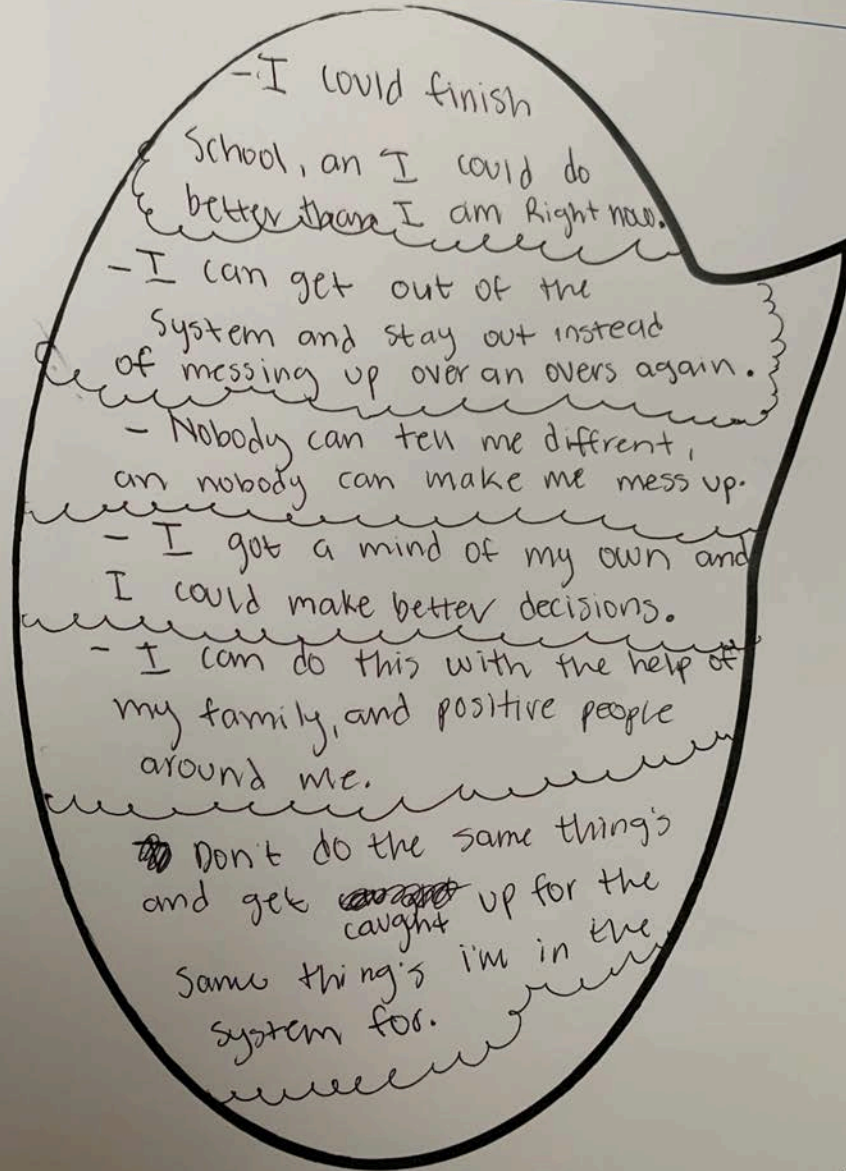 - I could finish
School, an I could do
better than I am Right now.
- I can get out of the
System and stay out instead
of messing up over an overs again.
- Nobody can tell me diffrent,
an nobody can make me mess up.
- I got a mind of my own and
I could make better decisions.
- I can do this with the help of
my family, and positive people
around me.
Don't do the same thing's
and get caught up for the
same thing's i'm in the
system for.